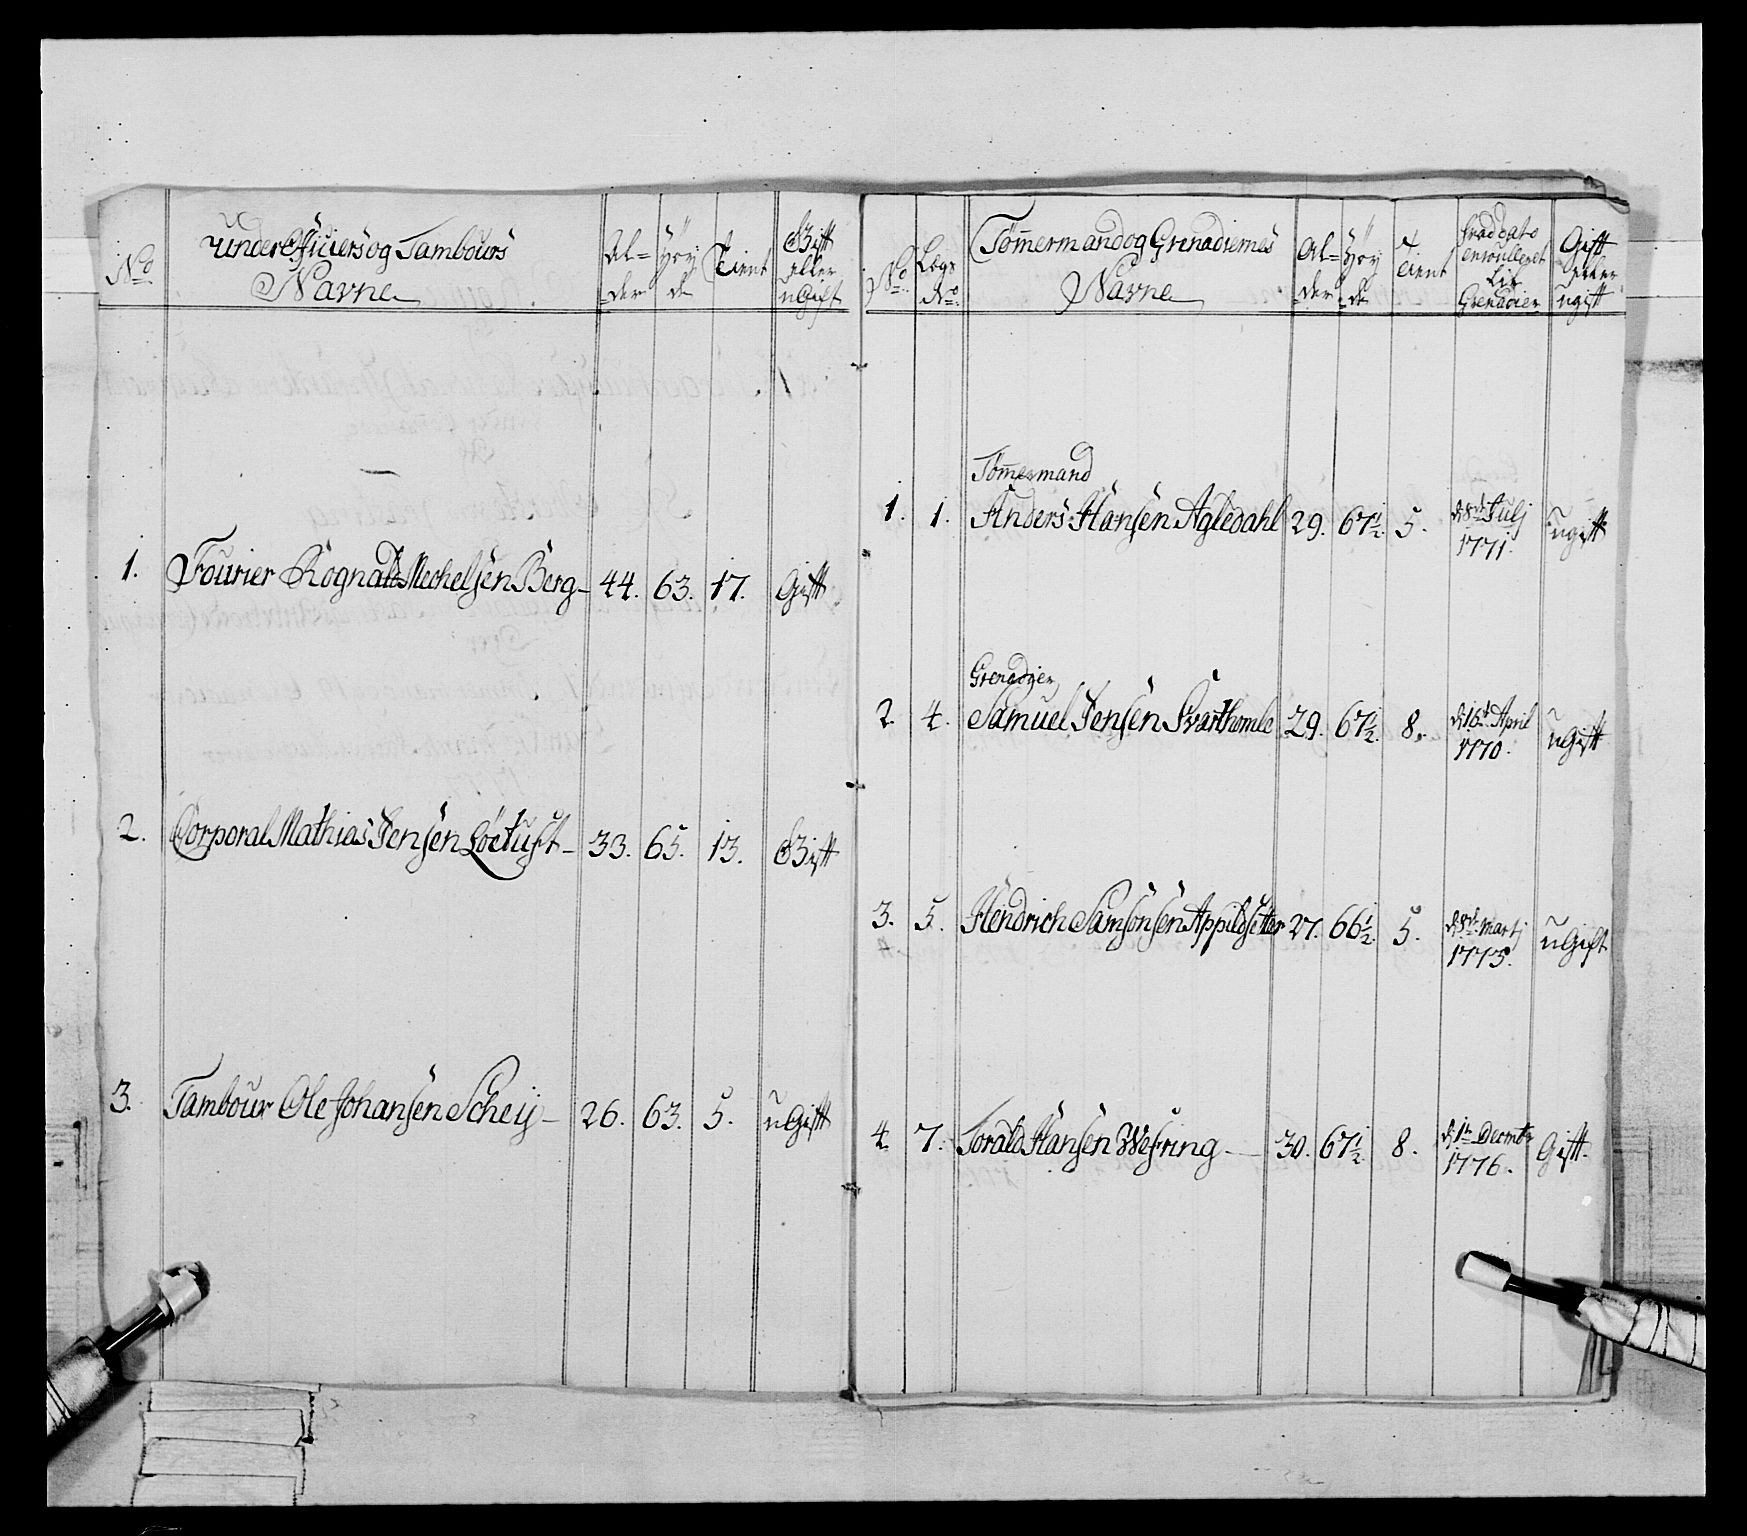 No
underOfficiers og Tambours
Navne
Al-
der
Høy
de
Tient
Gift
eller
uGift
1. Fourier Rognald Mechelsen Berg 44. 63. 17. Gift
2. Corporal Mathias Jensen Løetuft 33. 65. 13. Gift
3. Tambour Ole Johansen Scheij 26. 63. 5. uGift
No
Lægs
No
Tømmermand og Grenadiernes
Navne
Al-
der
Høy
de
Tient
hvad dato
enroulleret
Liv
Grenadier
Gift
eller
ugift
Tømmermand
1. 1. Anders Hansen Agledahl 29. 67½. 5. d 8de Julj
1771.
ugift
Grenadier
2. 4. Samuel Jensen Svarthomle 29. 67½. 8. d 16de April
1770.
uGift
3. 5. Hendrich Samsonsen Appildseter 27. 66½. 5. d 8de Martj
1773.
uGift
4. 7. Torald Hansen Wefring 30. 67½. 8. d 1te Decmbr
1776.
Gift.